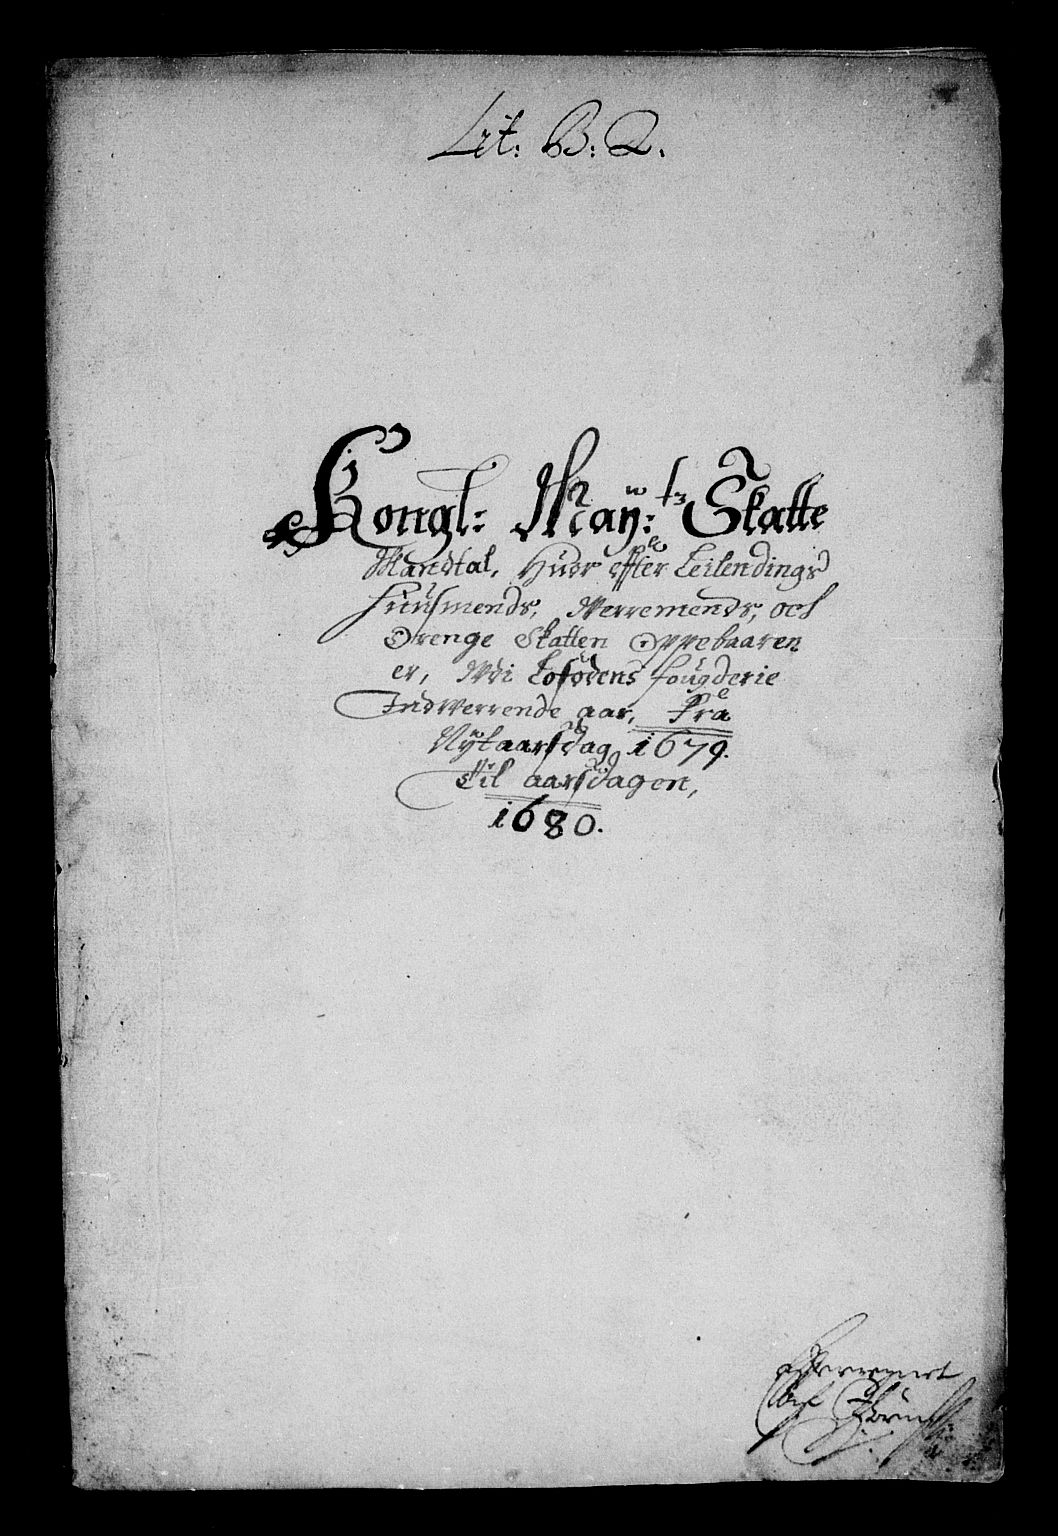 Lit: B: 2.
Kongl: May: tz Skatte
Mandtal, Huor effter Leilendings
Huusmends, Werremends, och
Drenge Skatten Oppebaaren
er, Wdi Lofodens fougderie
Indwerrende aar, Fra
Nytaarsdag 1679.
Til aarsdagen,
1680.